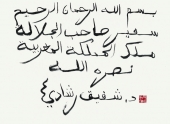 بسم الله الرحمان الرحيم
سفير صاحب الجلالة
ملك المملكة المغربية
نصره الله
د. شفيق رشادي